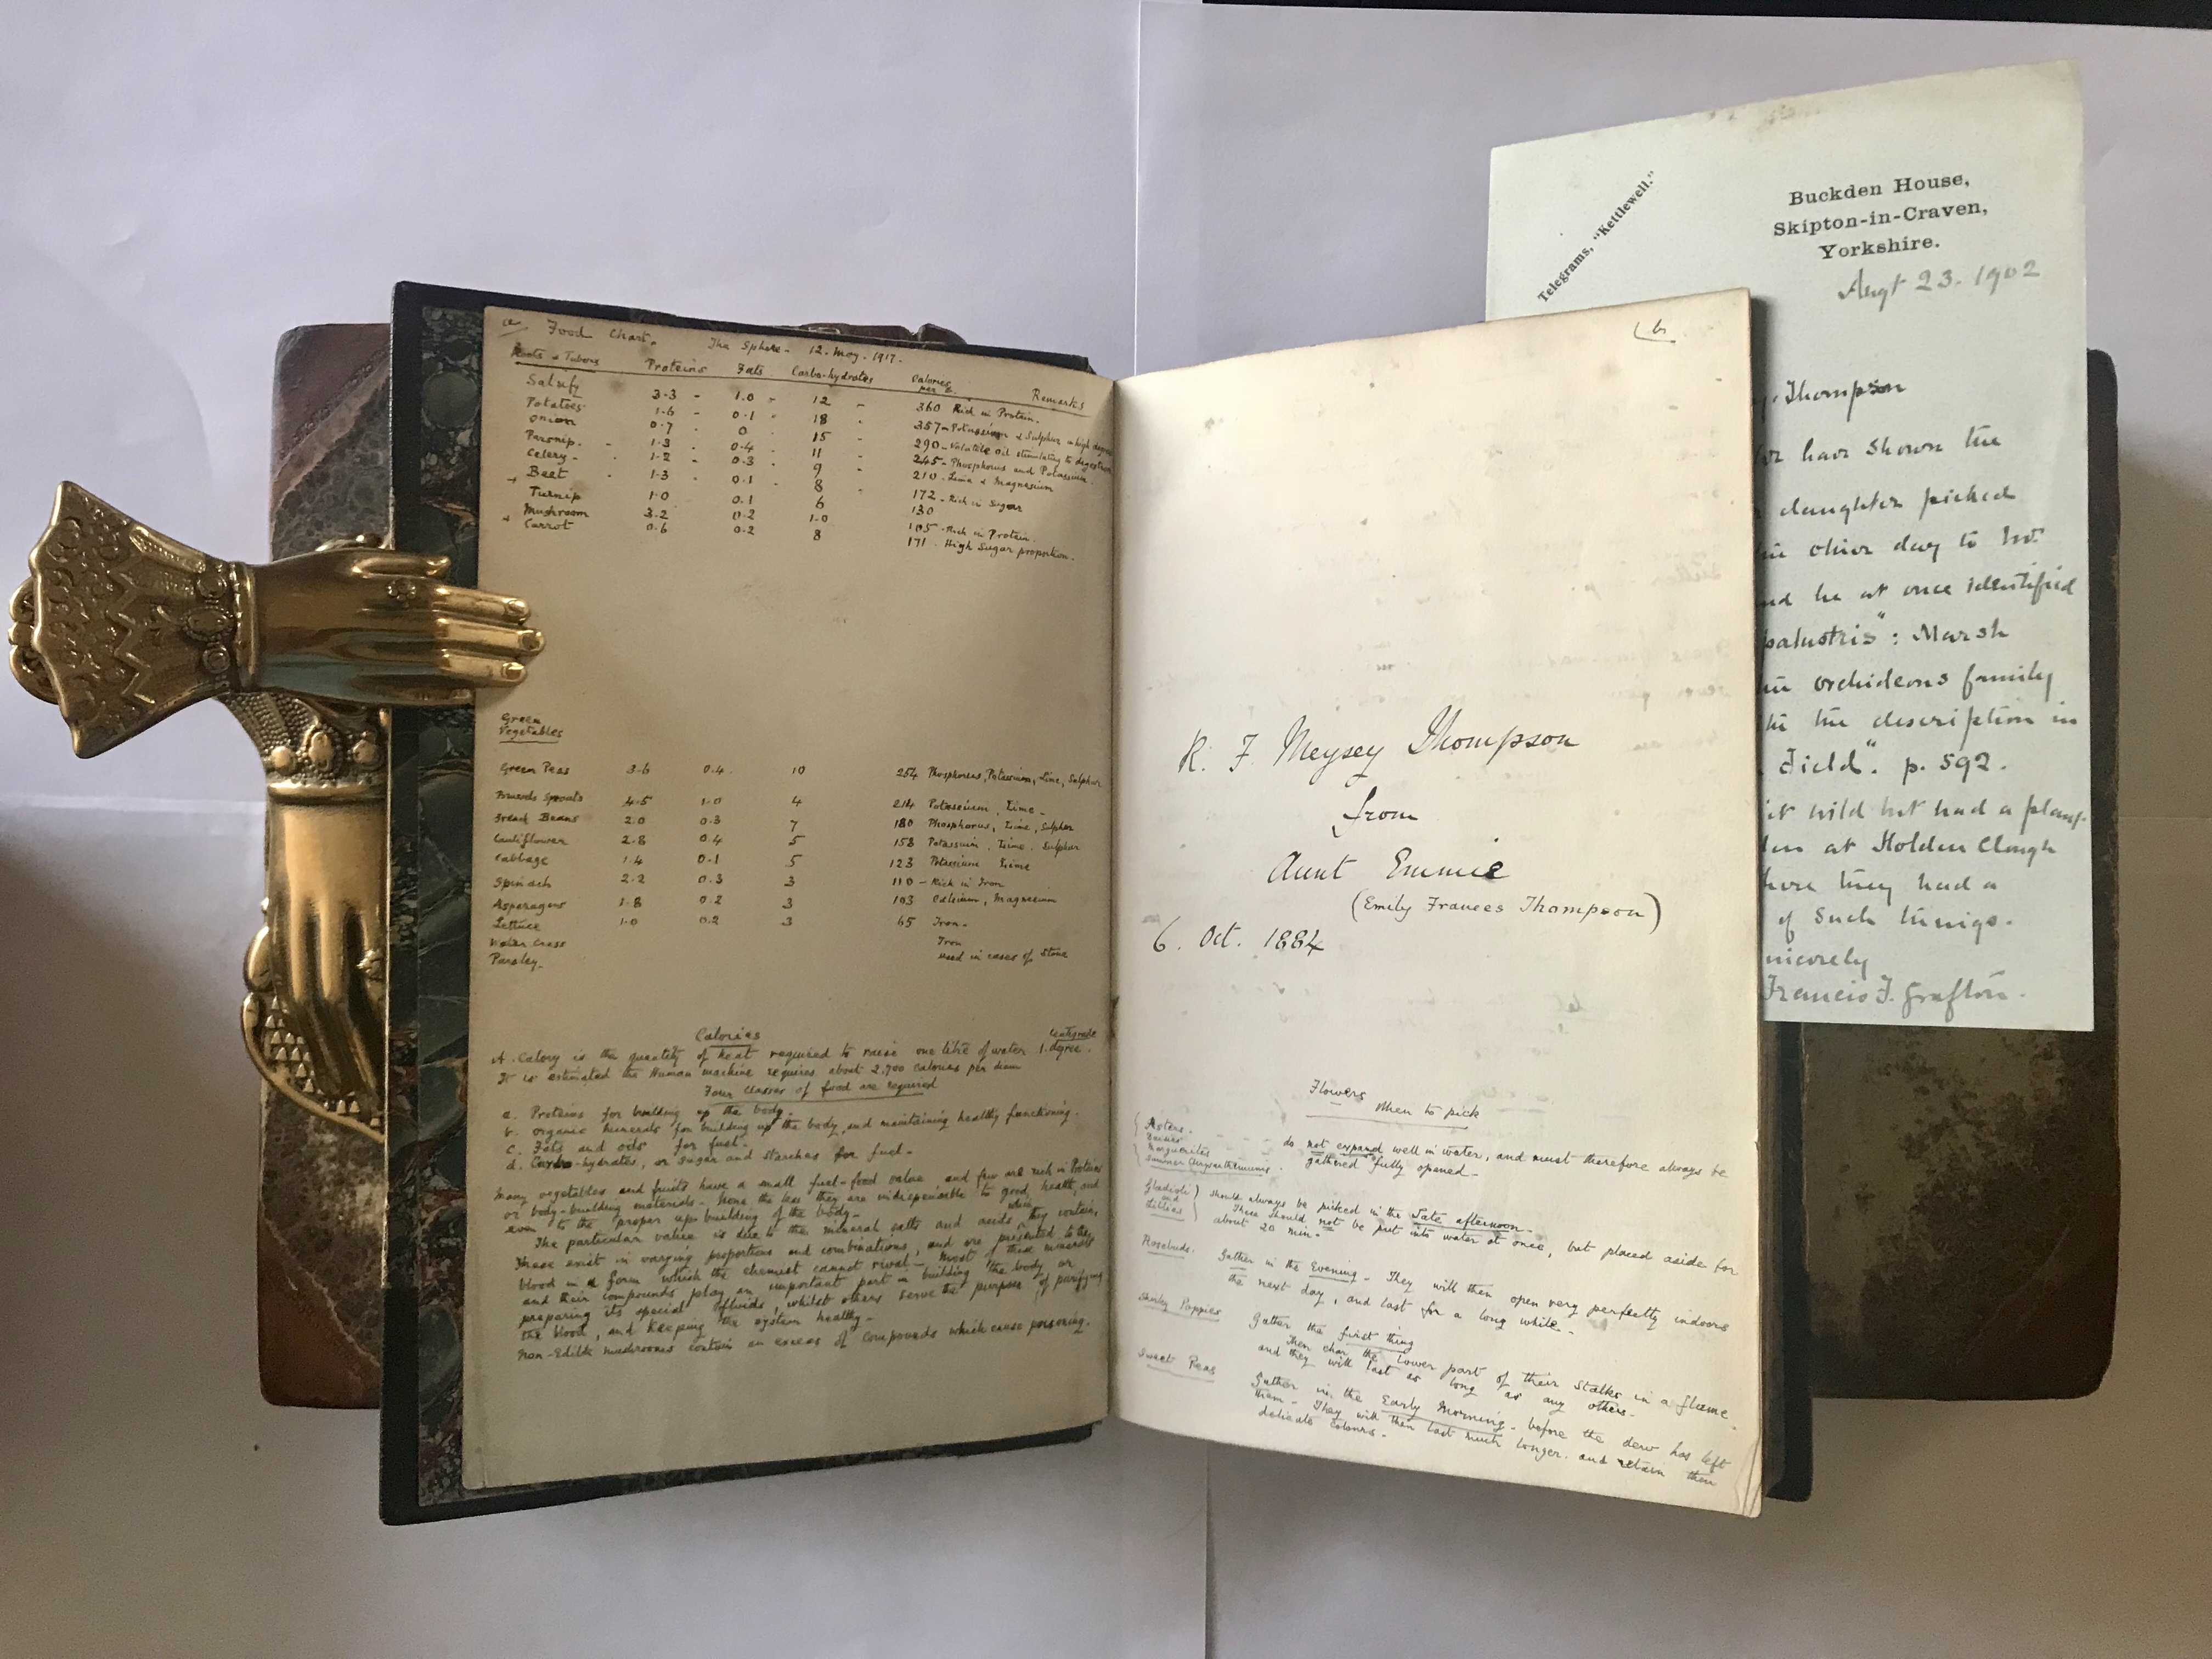 a Food Chart. The Sphere - 12. May. 1917.
Roots & Tubers Proteins Fats Carbo-hydrates Calories per Remarks
Salsify 3.3 - 1.0 - 12 - 360 Rich in Protein.
Potatoes 1.6 - 0.1 - 18 - 357 - Potassium & Sulphur in high degree
Onion 0.7 - 0 - 15 - 290 - Volatile oil stimulating to digestion
Parsnip. - 1.3 - 0.4 - 11 - 245 - Phosphorus and Potassium.
Celery - 1.2 - 0.3 - 9 - 210 - Lime & Magnesium
Beet - 1.3 - 0.1 - 8 - 172 - Rich in Sugar
Turnip 1.0 0.1 6 130
Mushroom 3.2 0.2 1.0 105 - Rich in Protein.
Carrot 0.6 0.2 8 171 - High Sugar proportion.
Green
Vegetables
Green Peas 3.6 0.4 10 254 Phosphorus, Potassium, Lime, Sulphur
Brussels Sprouts 4.5 1.0 4 214 Potassium, Lime -
French Beans 2.0 0.3 7 180 Phosphorus, Lime, Sulphur
Cauliflower 2.8 0.4 5 158 Potassium, Lime, Sulphur
Cabbage 1.4 0.1 5 123 Potassium Lime
Spinach 2.2 0.3 3 110 - Rich in Iron
Asparagus 1.8 0.2 3 103 Calcium, Magnesium
Lettuce 1.0 0.2 3 65 Iron -
Water Cress Iron
Parsley - used in cases of stone
Calories
A. Calory is the quantity of heat required to raise one litre of water 1. degree centigrade.
It is estimated the Human machine requires about 2,700 calories per diem
Four classes of food are required
a. Proteins for building up the body.
b. organic minerals for building up the body, and maintaining healthy functioning.
c. Fats and oils for fuel -
d. Carbo-hydrates, or sugar and starches for fuel -
Many vegetables and fruits have a small fuel-food value, and few are rich in Proteins
or body-building materials - None the less they are indispensible to good health, and
even to the proper up-building of the body -
The particular value is due to the mineral salts and acids which they contain,
these exist in varying proportions and combinations, and are presented to the
blood in a form which the chemist cannot rival - Most of these minerals
and their compounds play an important part in building the body or
preparing its special fluids, whilst others serve the purpose of purifying
the blood, and keeping the system healthy -
Non-Edible mushrooms contain an excess of compounds which cause poisoning.
b
R. F. Meysey Thompson
from
Aunt Emmie
(Emily Frances Thompson)
6. Oct. 1884
Flowers
When to pick
Asters.
Marguerites
Summer Chrysanthemums. do not expand well in water, and must therefore always be
gathered fully opened -
Gladioli
and
Lillies
should always be picked in the Late afternoon -
These should not be put into water at once, but placed aside for
about 20 min -
Rosebuds. Gather in the Evening - They will then open very perfectly indoors
the next day, and last for a long while -
Shirley Poppies Gather the first thing
Then char the lower part of their stalks in a flame
and they will last as long as any others -
Sweet Peas Gather in the Early Morning - before the dew has left
them - They will then last much longer. and retain their
delicate colours -
Telegrams, "Kettlewell."
Buckden House,
Skipton-in-Craven,
Yorkshire.
Augt 23. 1902
Thompson
have shown the
daughter picked
day to Mr
he at once identified
palustris": Marsh
orchideous family
the description in
Field". p. 592.
it wild but had a plant
at Holden Clough
they had a
of such things.
Francis F. Grafton.